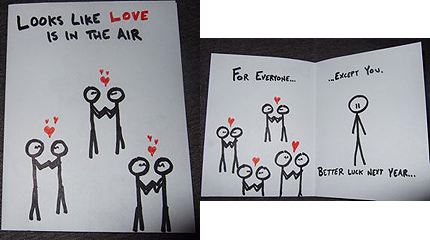 LOOKS LIKE LOVE
IS IN THE AIR
FOR EVERYONE...
...EXCEPT YOU.
BETTER LUCK NEXT YEAR...